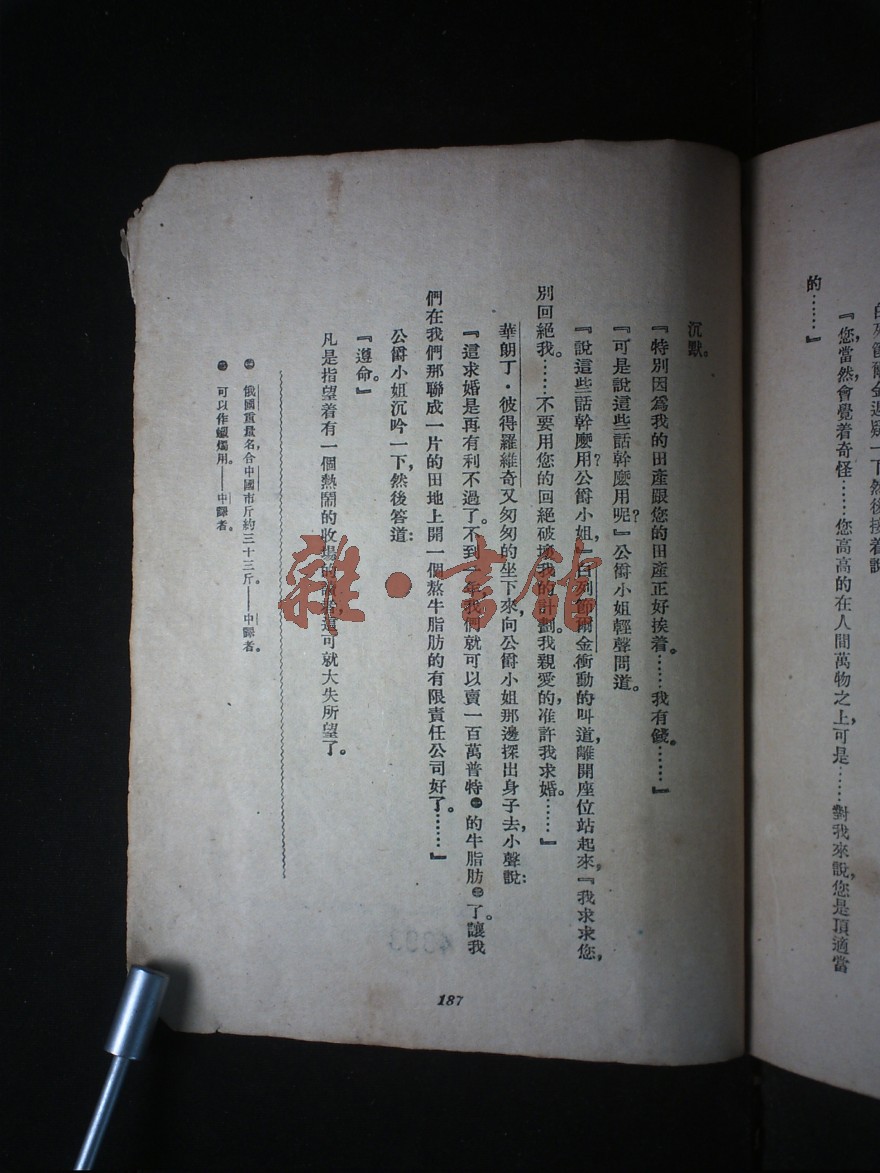 『您，當然會覺着奇怪……您高高的在人間萬物之上，可是……對我來說，您是頂適當
的……』
沉默。
『特別因爲我的田產跟您的田產正好挨着。……我有錢。……』
『可是說這些話幹麼用呢？』公爵小姐輕聲問道。
『說這些話幹麼用？公爵小姐，』白列
金衝動的叫道，離開座位站起來，『我求求您，
別回絕我。……不要用您的回絕破壞我的計劃。我親愛的，准許我求婚。……』
華朗丁·彼得羅維奇又匆匆的坐下來，向公爵小姐那邊探出身子去，小聲說：
『這求婚是再有利不過了。不到一年我們就可以賣一百萬普特㊀的牛脂肪㊁了。讓我
們在我們那聯成一片的田地上開一個熬牛脂肪的有限責任公司好了。……』
公爵小姐沉吟一下，然後答道：
『遵命。』
凡是指望着有一個熱鬧的收場的
可就大失所望了。
㊀ 俄國重量名，合中國市斤約三十三斤。——中譯者。
㊁ 可以作蠟燭用。——中譯者。
187
雜·書館